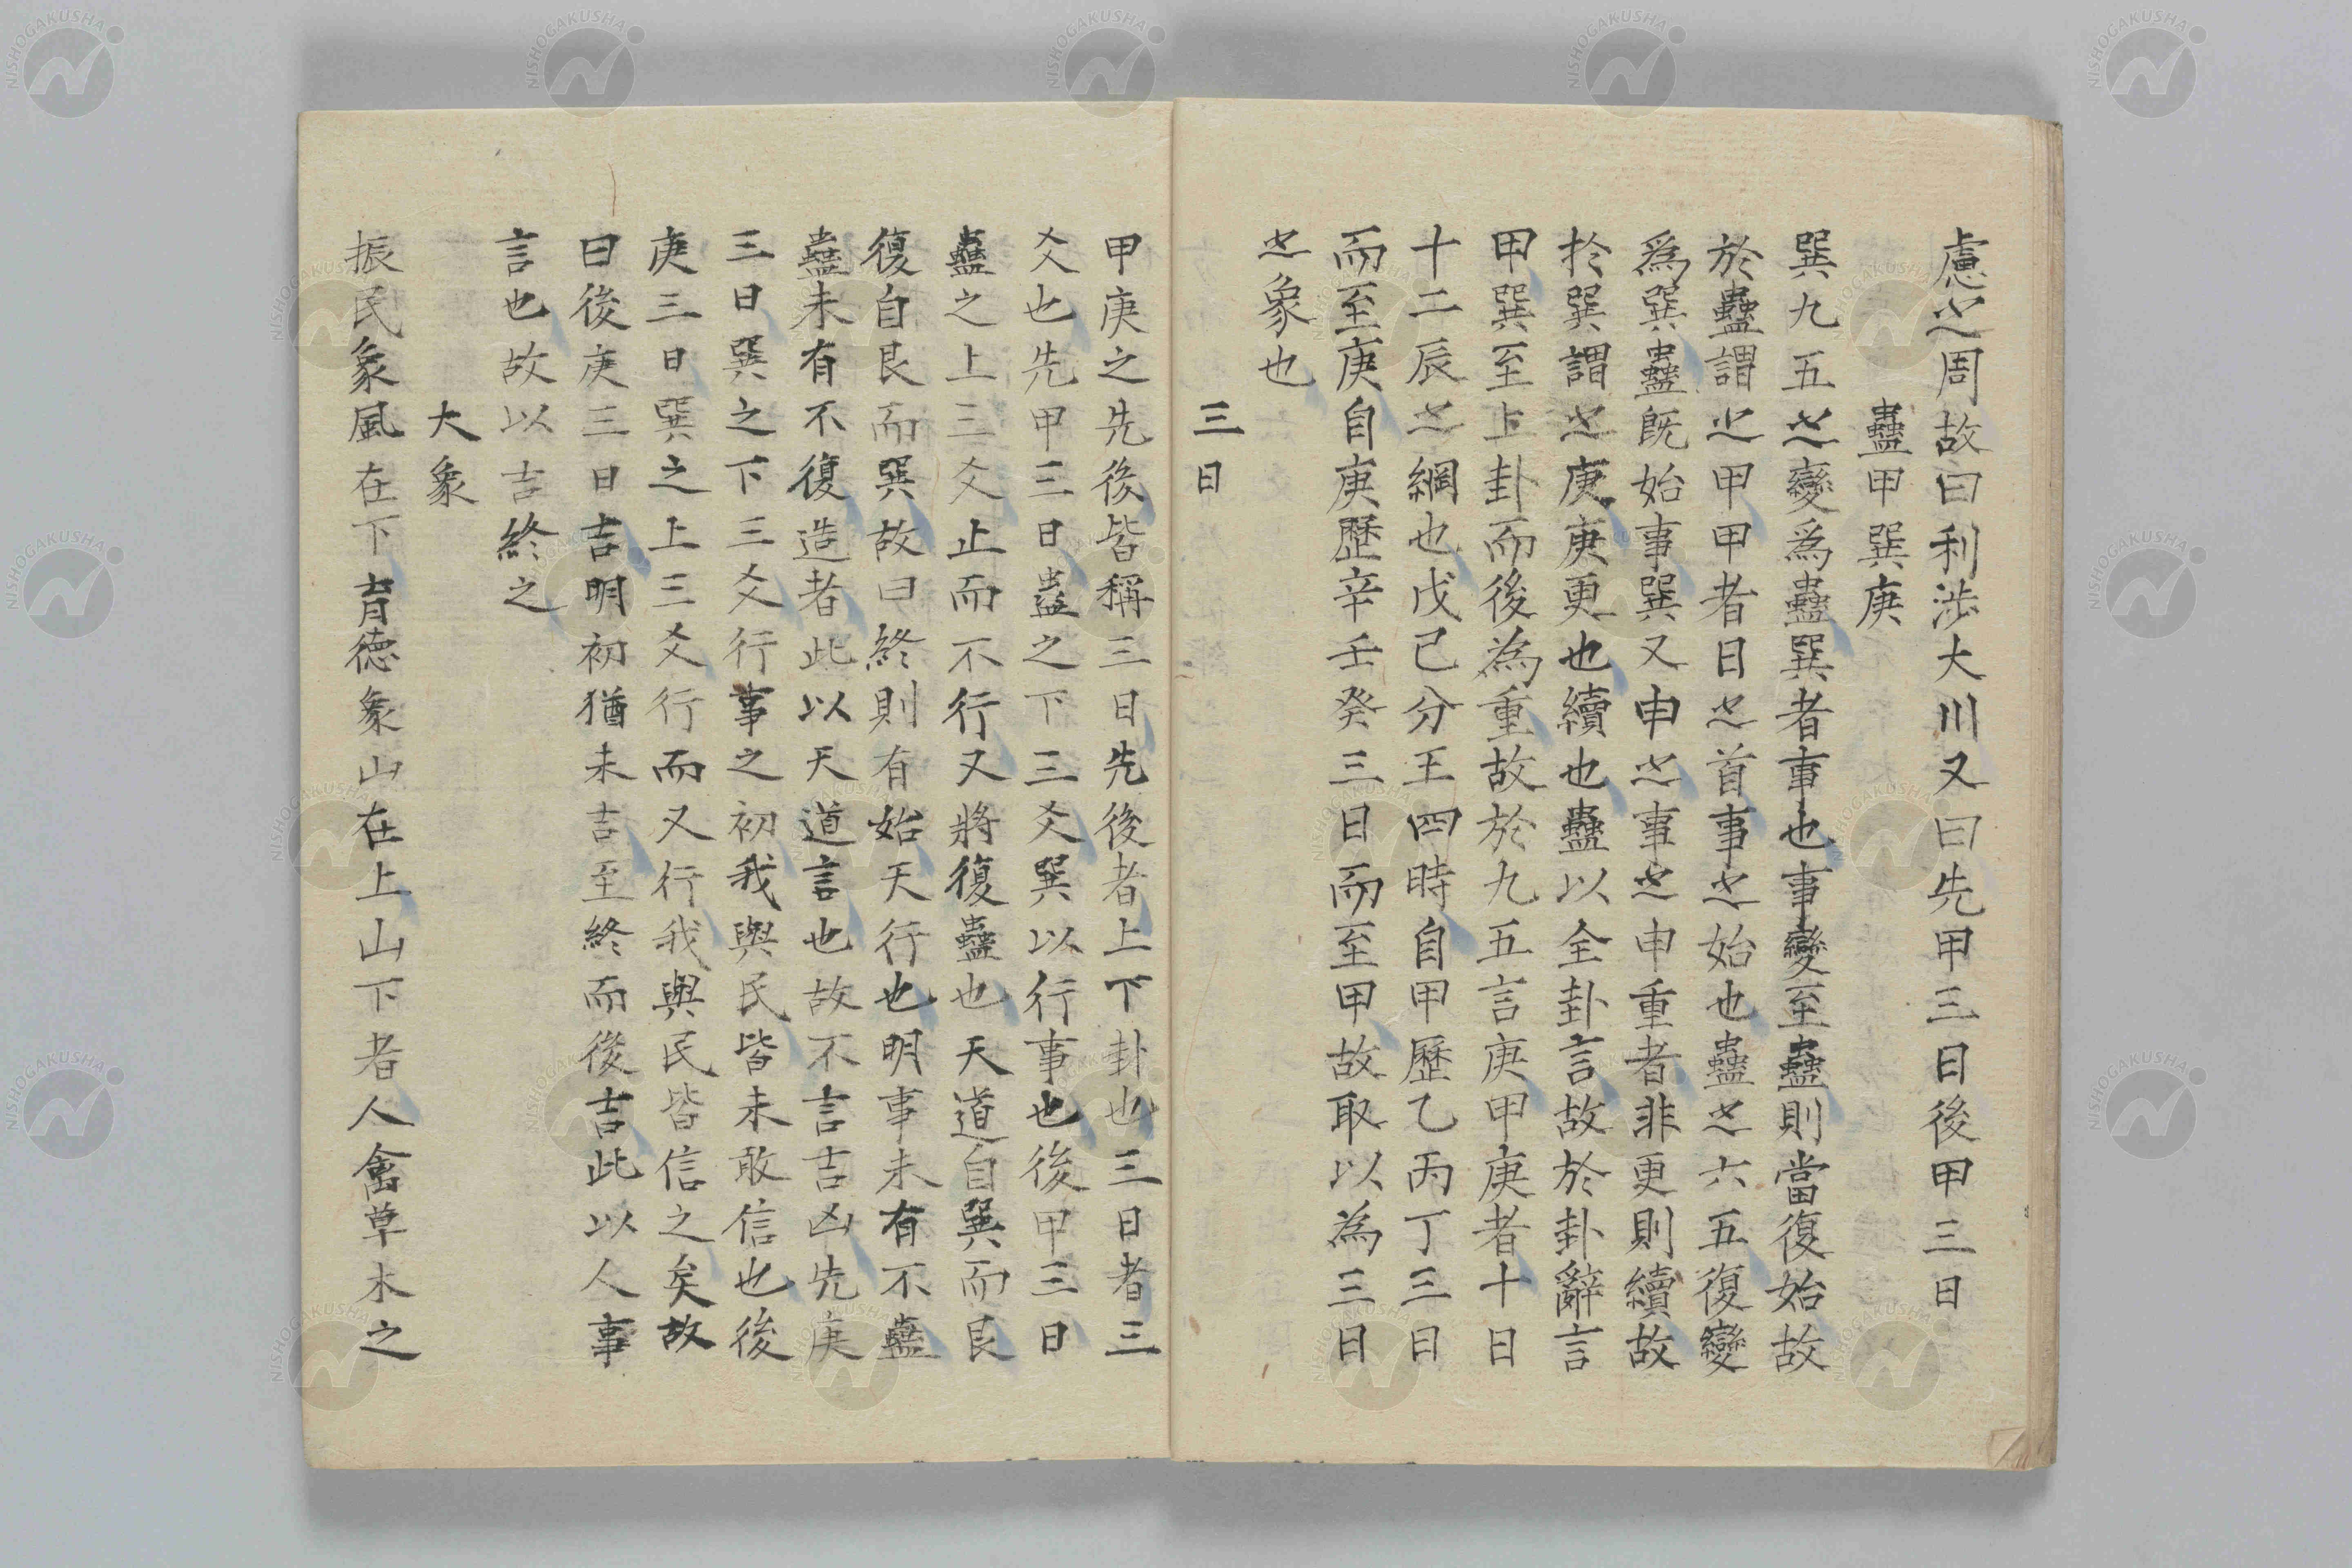 慮之周故曰利涉大川又曰先甲三日後甲三日
蠱甲巽庚
巽九五之變爲蠱巽者事也事變至蠱則當復始故
於蠱謂之甲甲者日之首事之始也蠱之六五復變
爲巽蠱既始事巽又申之事之申重者非更則續故
於巽謂之庚庚更也續也蠱以全卦言故於卦辭言
甲巽至上卦而後為重故於九五言庚甲庚者十日
十二辰之綱也戊己分王四時自甲歷乙丙丁三日
而至庚自庚歷辛壬癸三日而至甲故取以為三日
之象也
三日
甲庚之先後皆稱三日先後者上下卦也三日者三
爻也先甲三日蠱之下三爻巽以行事也後甲三日
蠱之上三爻止而不行又將復蠱也天道自巽而艮
復自艮而巽故曰終則有始天行也明事未有不蠱
蠱未有不復造者此以天道言也故不言吉凶先庚
三日巽之下三爻行事之初我與民皆未敢信也後
庚三日巽之上三爻行而又行我與民皆信之矣故
曰後庚三日吉明初猶未吉至終而後吉此以人事
言也故以吉終之
大象
振民象風在下育德象山在上山下者人禽草木之
NISHOGAKUSHA